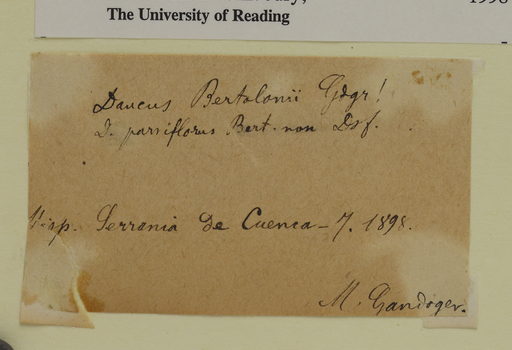 The University of Reading
Daucus Bertolonii Gdgr!
D. parviflorus Bert. non Dsf.
Hisp. Serrania de Cuenca - 7. 1898.
M. Gandoger.